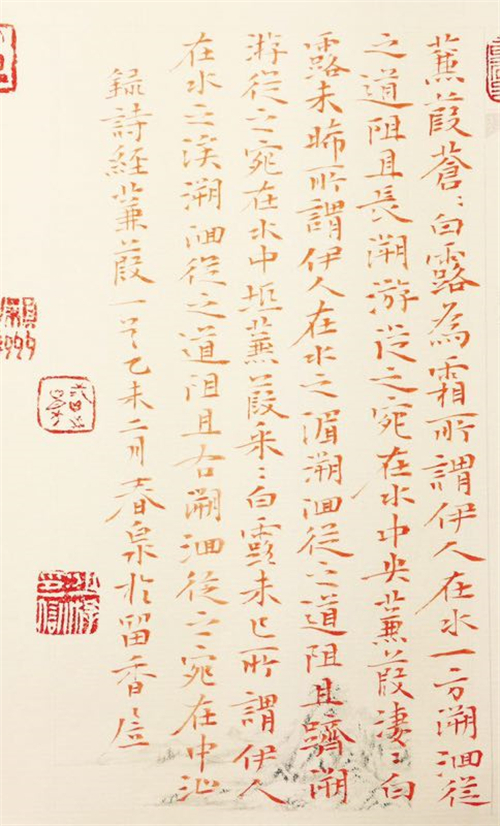 蒹葭蒼〻白露為霜所謂伊人在水一方溯洄從
之道阻且長溯游從之宛在水中央蒹葭淒〻白
露未晞所謂伊人在水之湄溯洄從之道阻且躋溯
游從之宛在水中坻蒹葭采〻白露未已所謂伊人
在水之涘溯洄從之道阻且右溯洄從之宛在中沚
錄詩經蒹葭一首乙未二月春泉於留香